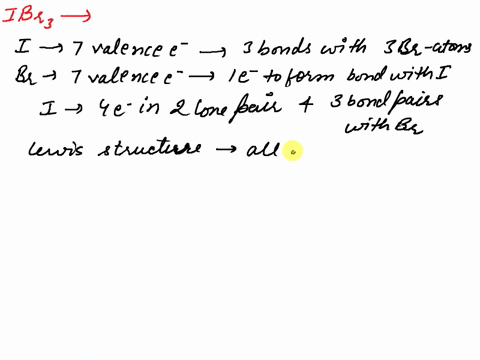 IBr3 →
I → 7 valence e⁻ → 3 bonds with 3Br-atoms
Br → 7 valence e⁻ → 1e⁻ to form bond with I
I → 4e⁻ in 2 lone pair + 3 bond pairs
with Br
Lewis structure → all